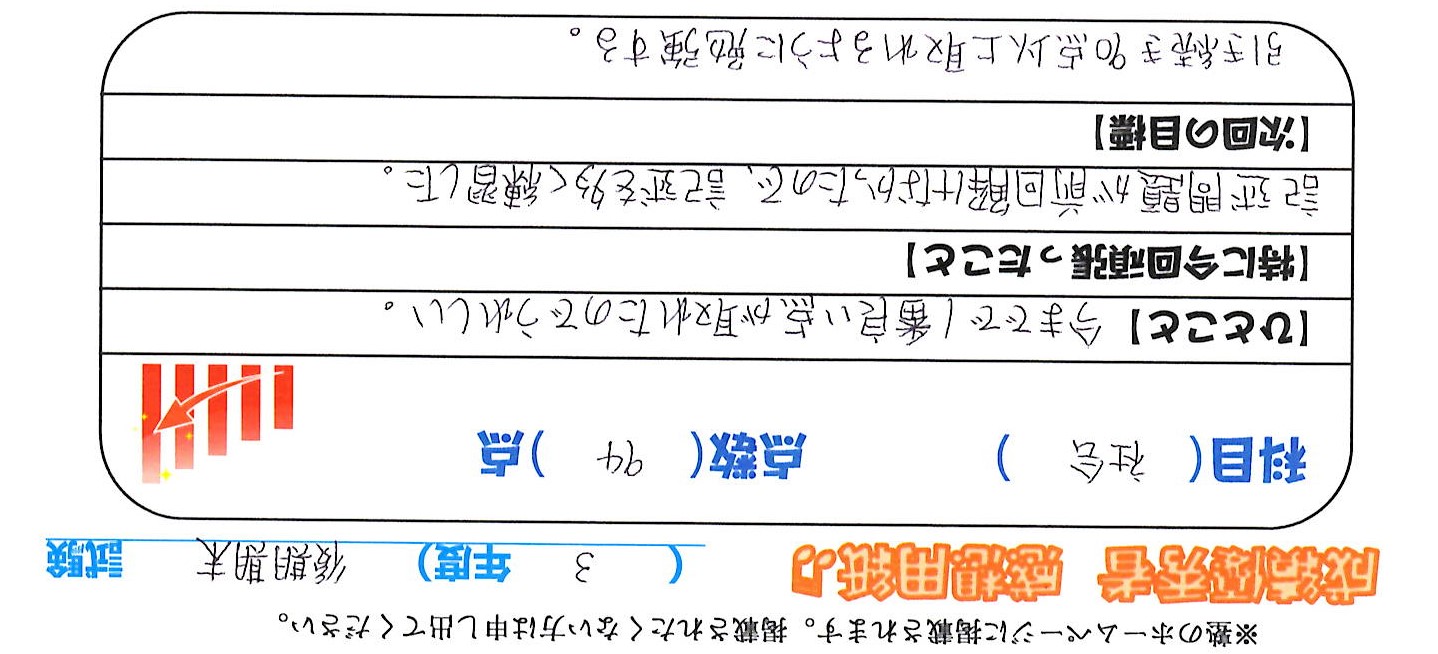 ※塾のホームページに掲載されます。掲載されたくない方は申し出てください。
成績優秀者 感想用紙♪ ( 3 年度) 後期期末 試験
科目( 社会 ) 点数( 94 )点
【ひとこと】 今までで1番良い点が取れたのでうれしい。
【特に今回頑張ったこと】
記述問題が前回解けなかったので、記述を多く練習した。
【次回の目標】
引き続き90点以上取れるように勉強する。